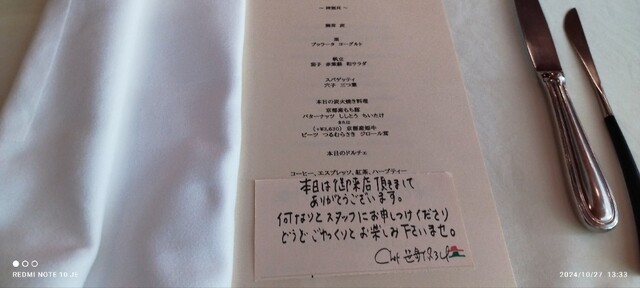 桃
ブッラータ ヨーグルト
帆立
茄子 和サラダ
スパゲッティ
穴子 三つ葉
本日の炭火焼き料理
京都産もち豚
バターナッツ ししとう ちいたけ
または
(+¥3,630) 京都産姫牛
ビーツ つるむらさき ジロール茸
本日のドルチェ
コーヒー、エスプレッソ、紅茶、ハーブティー
本日は御来店頂きまして
ありがとうございます。
何なりとスタッフにお申しつけくださり
どうぞごゆっくりとお楽しみ下さいませ。
Chef
REDMI NOTE 10 JE
2024/10/27 13:33